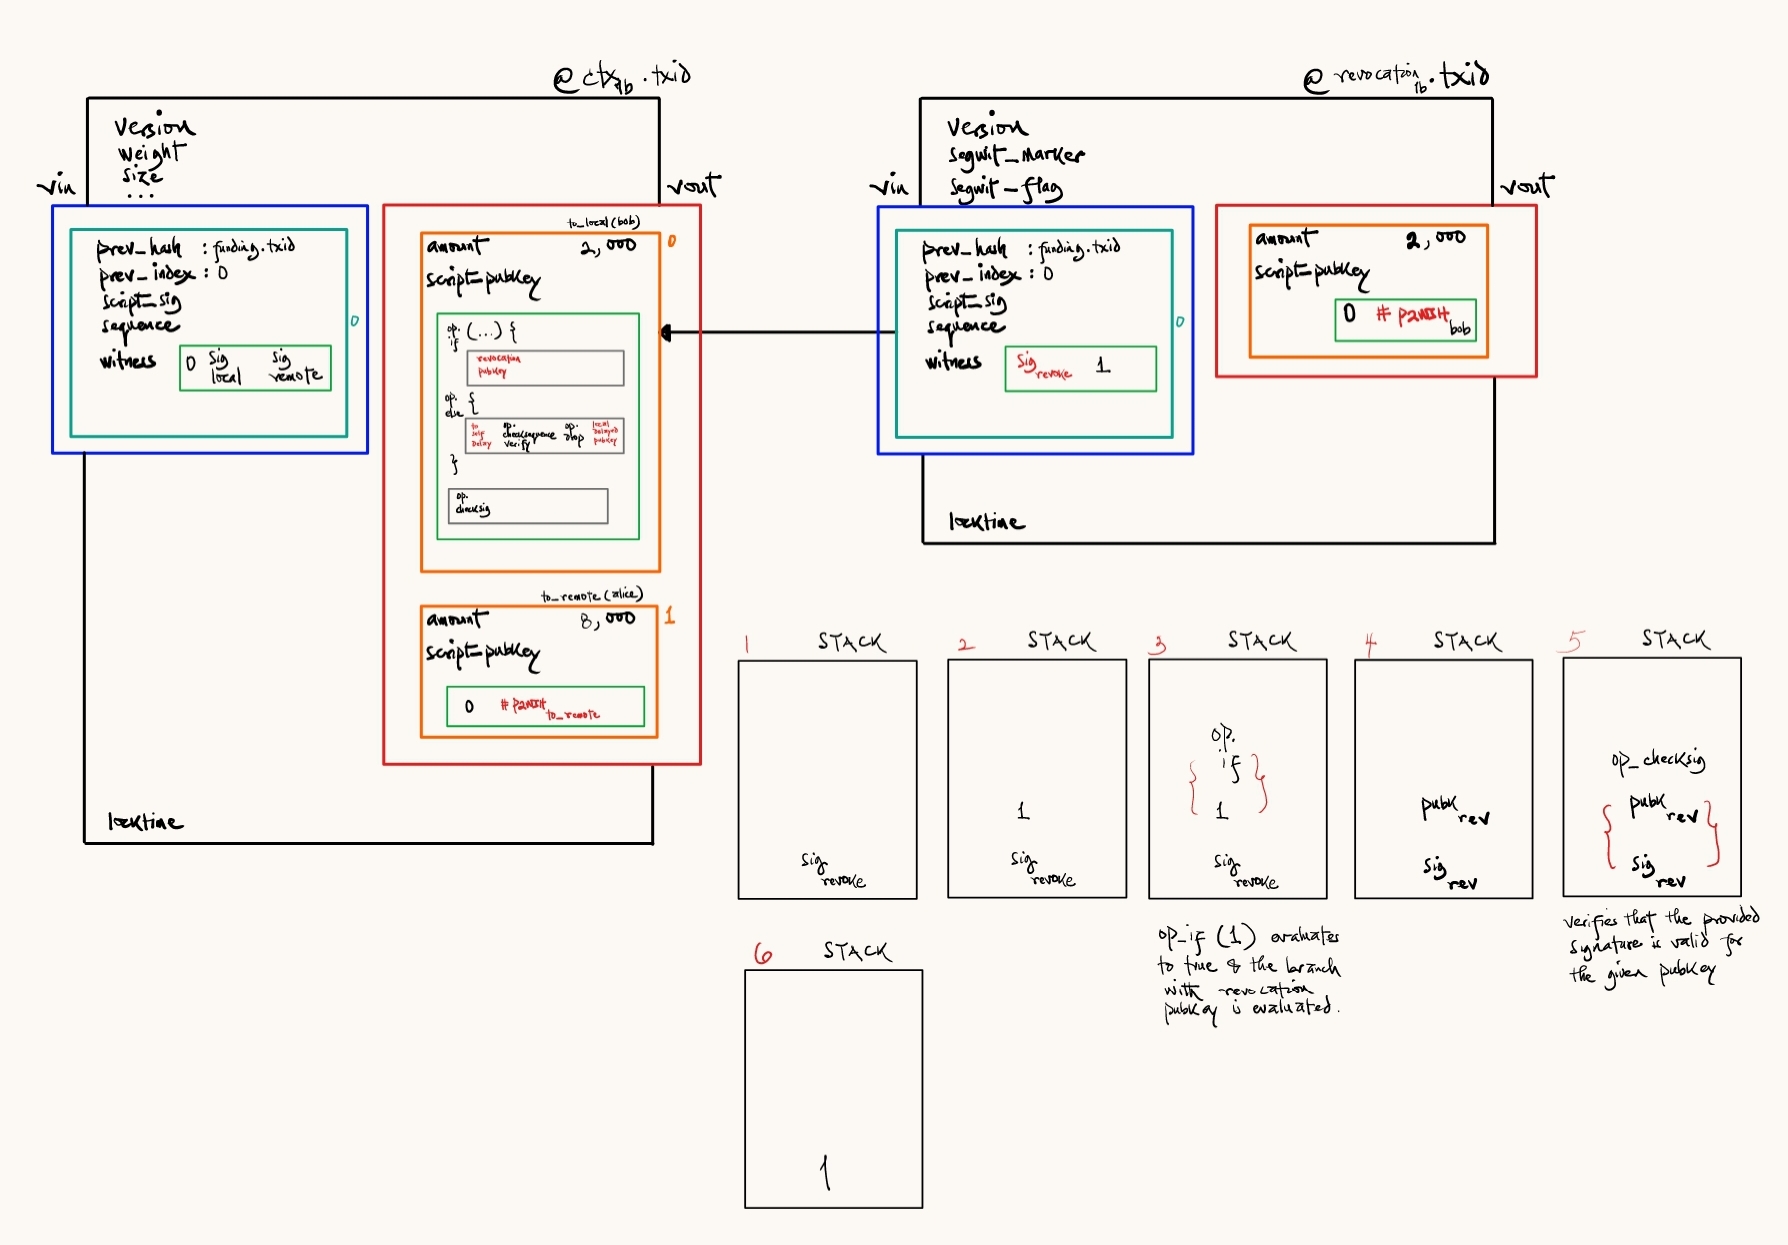 @ctx1b.txid
version
weight
size
...
vin
vout
prev_hash : funding.txid
prev_index : 0
script_sig
sequence
witness
0 sig local sig remote
0
to_local (bob)
0
amount 2,000
script_pubkey
op. if (...) {
revocation
pubkey
op. else {
to self delay op. checksequence verify op. drop local delayed pubkey
}
op.
checksig
to_remote (alice)
1
amount 8,000
script_pubkey
0 #P2WSH to_remote
locktime
@revocation1b.txid
version
segwit_marker
segwit_flag
vin
vout
prev_hash : funding.txid
prev_index : 0
script_sig
sequence
witness
sig revoke 1
0
amount 2,000
script_pubkey
0 #P2WSH bob
locktime
1 STACK
sig revoke
2 STACK
1
sig revoke
3 STACK
op.
{ if }
1
sig revoke
op_if (1) evaluates
to true & the branch
with revocation
pubkey is evaluated.
4 STACK
pubk rev
sig rev
5 STACK
op_checksig
{ pubk rev }
sig rev
verifies that the provided
signature is valid for
the given pubkey
6 STACK
1